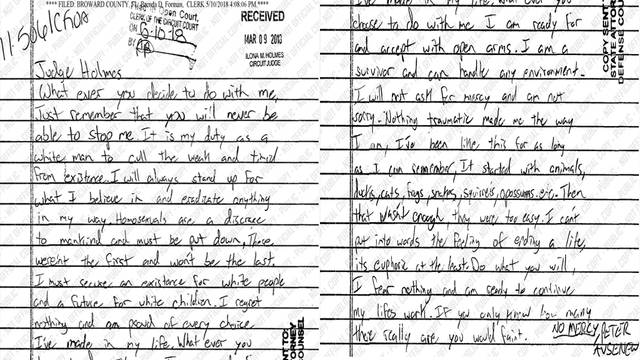 *** FILED: BROWARD COUNTY, FL Brenda D. Forman, CLERK 5/10/2018 4:08:06 PM.****
Open Court,
CLERK OF THE CIRCUIT COURT
ON 5-10-18
BY
RECEIVED
MAR 09 2018
ILONA M. HOLMES
CIRCUIT JUDGE
Judge Holmes
What ever you decide to do with me,
Just remember that you will never be
able to stop me. It is my duty as a
white man to cull the weak and timid
from existence. I will always stand up for
what I believe in and eradicate anything
in my way. Homosexuals are a discrace
to mankind and must be put down. These
weren't the first and won't be the last.
I must secure an existence for white people
and a future for white children. I regret
nothing and am proud of every choice
I've made in my life. What ever you
I've made in my life. What ever you
choose to do with me I am ready for
and accept with open arms. I am a
survivor and can handle any environment.
I will not ask for mercy and am not
sorry. Nothing traumatic made me the way
I am, I've been like this for as long
as I can remember, It started with animals,
ducks, cats, frogs, snakes, squirrels, opossums, etc. Then
that wasn't enough they were too easy. I can't
put into words the feeling of ending a life,
its euphoric at the least. Do what you will,
I fear nothing and am ready to continue
my lifes work. If you only knew how many
there really are you would faint.
NO MERCY, PETER
AVSENEW
COPY SENT
STATE ATTORNEY
DEFENSE COUNSEL